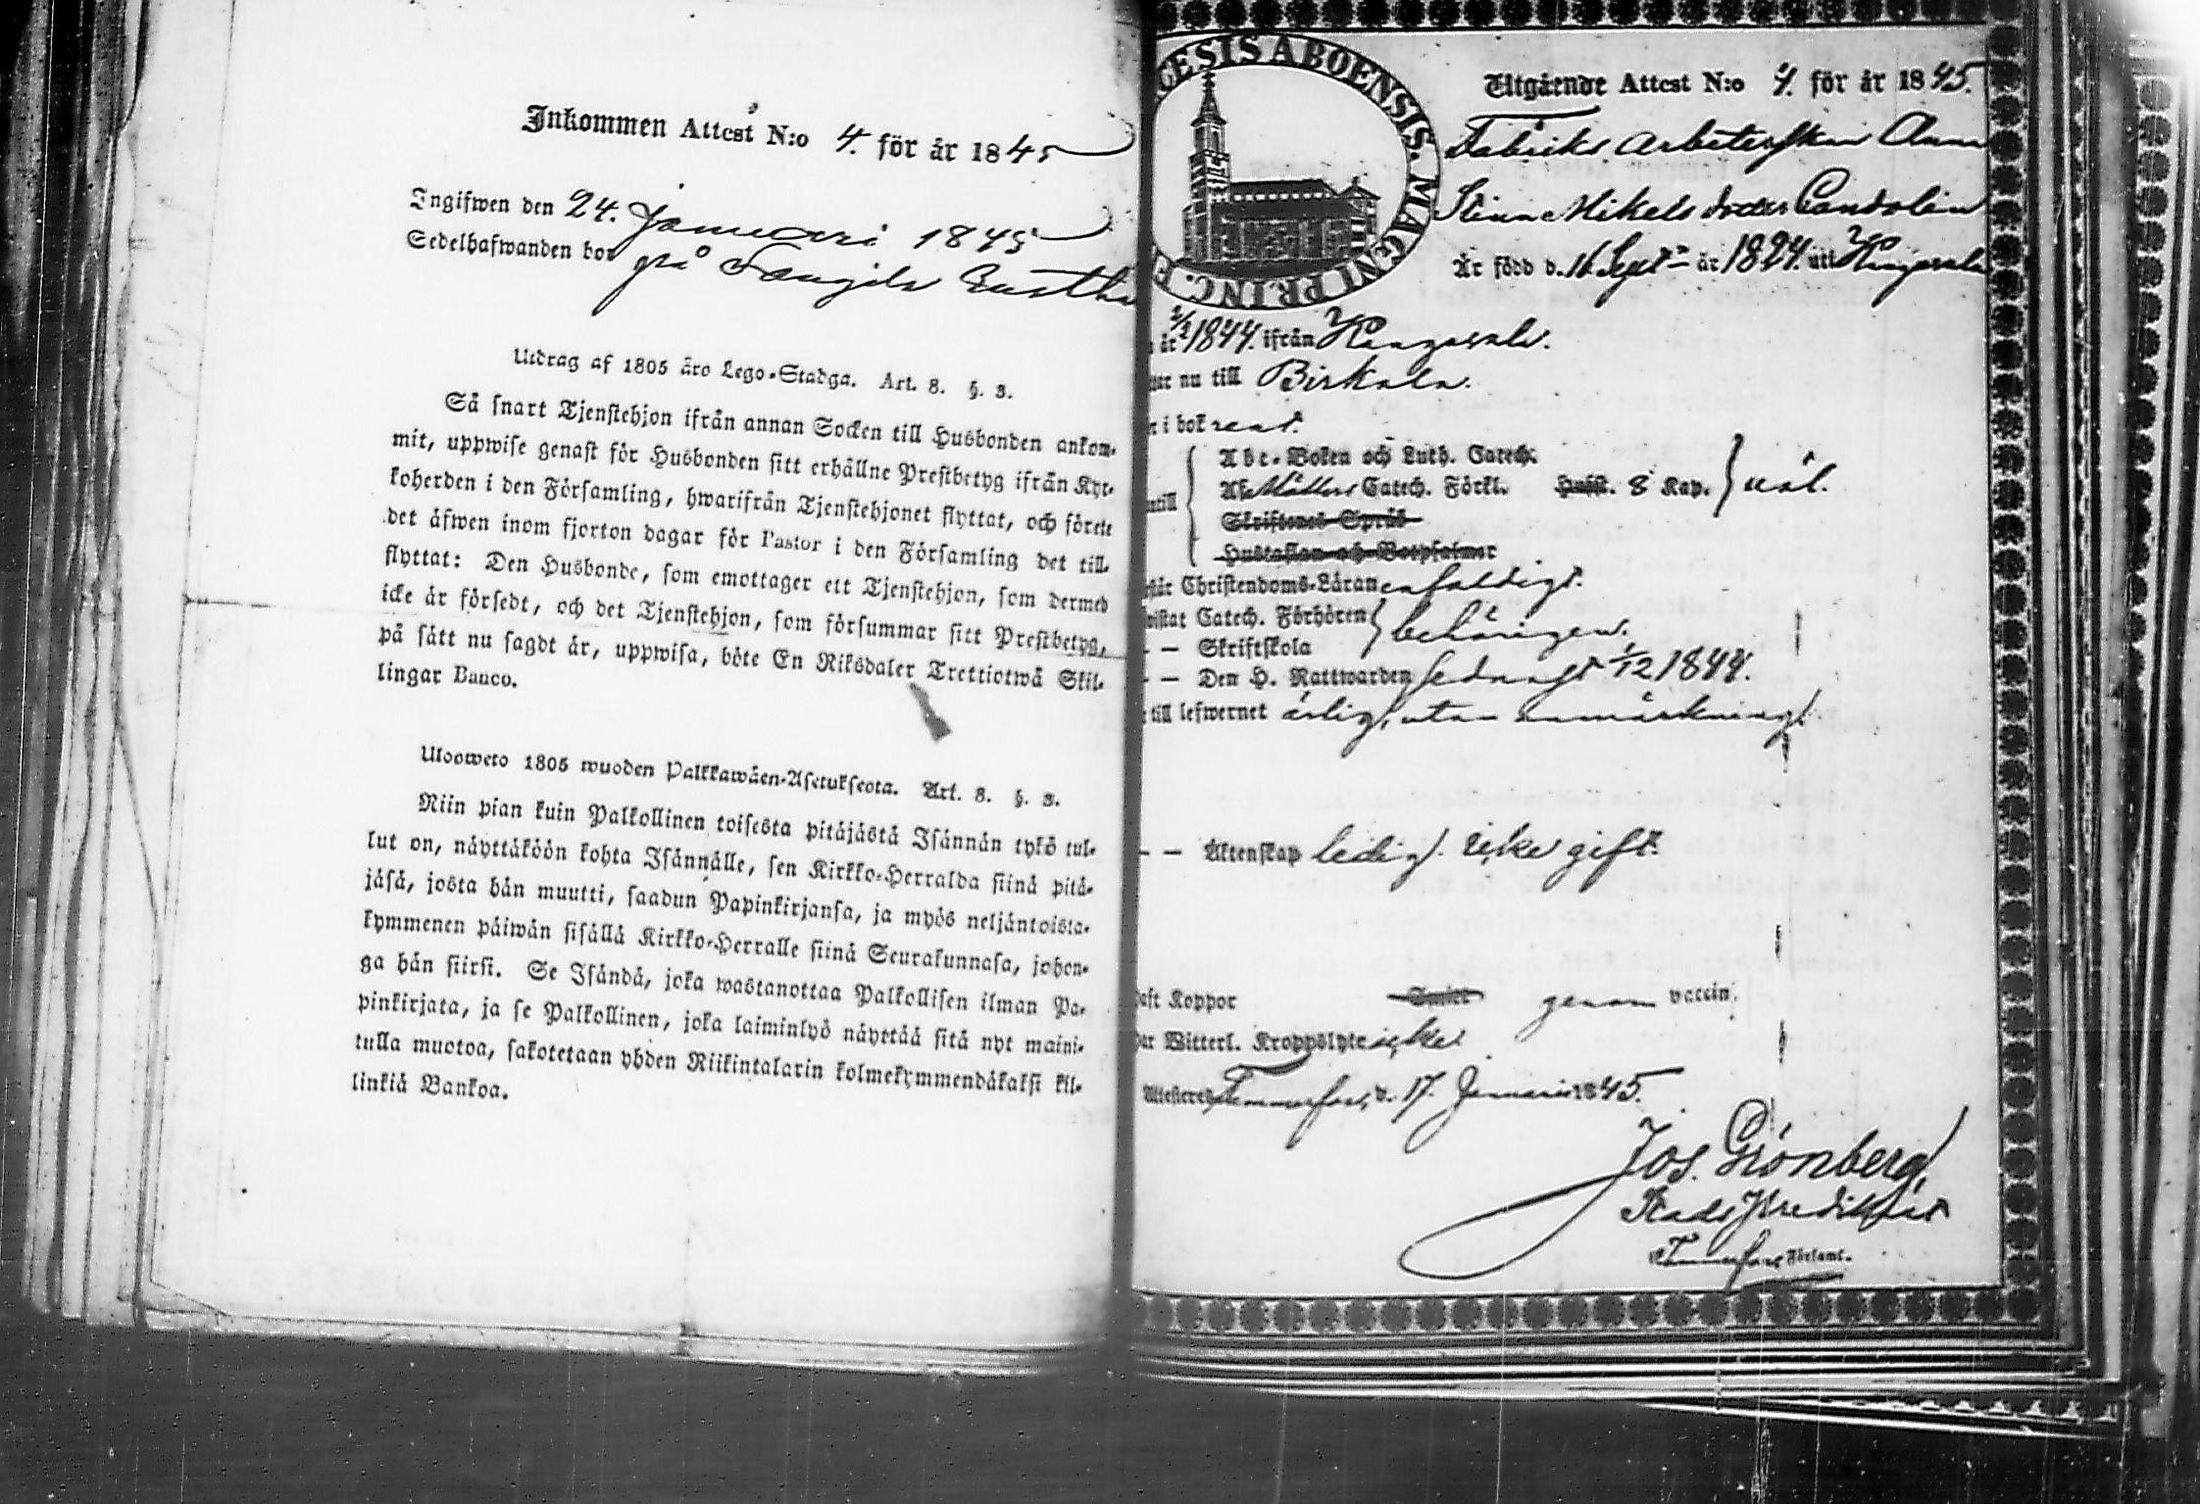 Inkommen Attest N:o 4. för år 1845
Ingifwen den 24. Januari 1845
Sedelhafwanden bor på
Utdrag af 1805 års Lego-Stadga. Art. 8. §. 3.
Så snart Tjenstehjon ifrån annan Socken till Husbonden ankom-
mit, uppwise genast för Husbonden sitt erhållne Prestbetyg ifrån Kyr-
koherden i den Församling, hwarifrån Tjenstehjonet flyttat, och förete
det äfwen inom fjorton dagar för Pastor i den Församling det till-
flyttat: Den Husbonde, som emottager ett Tjenstehjon, som dermed
icke är försedt, och det Tjenstehjon, som försummar sitt Prestbetyg,
på sätt nu sagdt är, uppwisa, böte En Riksdaler Trettiotwå Skil-
lingar Banco.
Ulosweto 1805 wuoden Palkkawäen-Asetuksesta. Art. 8. §. 3.
Niin pian kuin Palkollinen toisesta pitäjästä Isännän tykö tul-
lut on, näyttäköön kohta Isännälle, sen Kirkko-Herralda siinä pitä-
jäsä, josta hän muutti, saadun Papinkirjansa, ja myös neljäntoista-
kymmenen päiwän sisällä Kirkko-Herralle siinä Seurakunnasa, johon-
ga hän siirsi. Se Isändä, joka wastanottaa Palkollisen ilman Pa-
pinkirjata, ja se Palkollinen, joka laiminlyö näyttää sitä nyt maini-
tulla muotoa, sakotetaan yhden Riikintalarin kolmekymmendäkaksi kil-
linkiä Bankoa.
CESIS ABOENSIS. MAGNI PRINC. F
Utgående Attest N:o 4. för år 1845.
Fabriks arbeterskan Anna
Stina Mikels dotter Candolin
Är född d. 16 Sept. år 1824. uti Kangasala
år 2/2 1844. ifrån Kangasala.
nu till Birkala.
i bok rent.
Abc-Boken och Luth. Catech.
Af Möllers Catech. Förkl. Husst. 8 Kap. } wäl.
Skriftenes Språk
Hustaflan och Botpsalmer
Christendoms-Läran enfaldigt.
wistat Catech. Förhören
— — Skriftskola } behörigen.
— — Den H. Nattwarden sednast 1/12 1844.
till lefwernet ärlig, utan anmärkning.
— — Äktenskap ledig. icke gift.
haft Koppor Smitt genom vaccin.
har Witterl. Kroppslyte icke
Attesterer Tammerfors, d. 17. Januari 1845.
Jos. Grönberg
Stads Predikant
Tammerfors Församl.